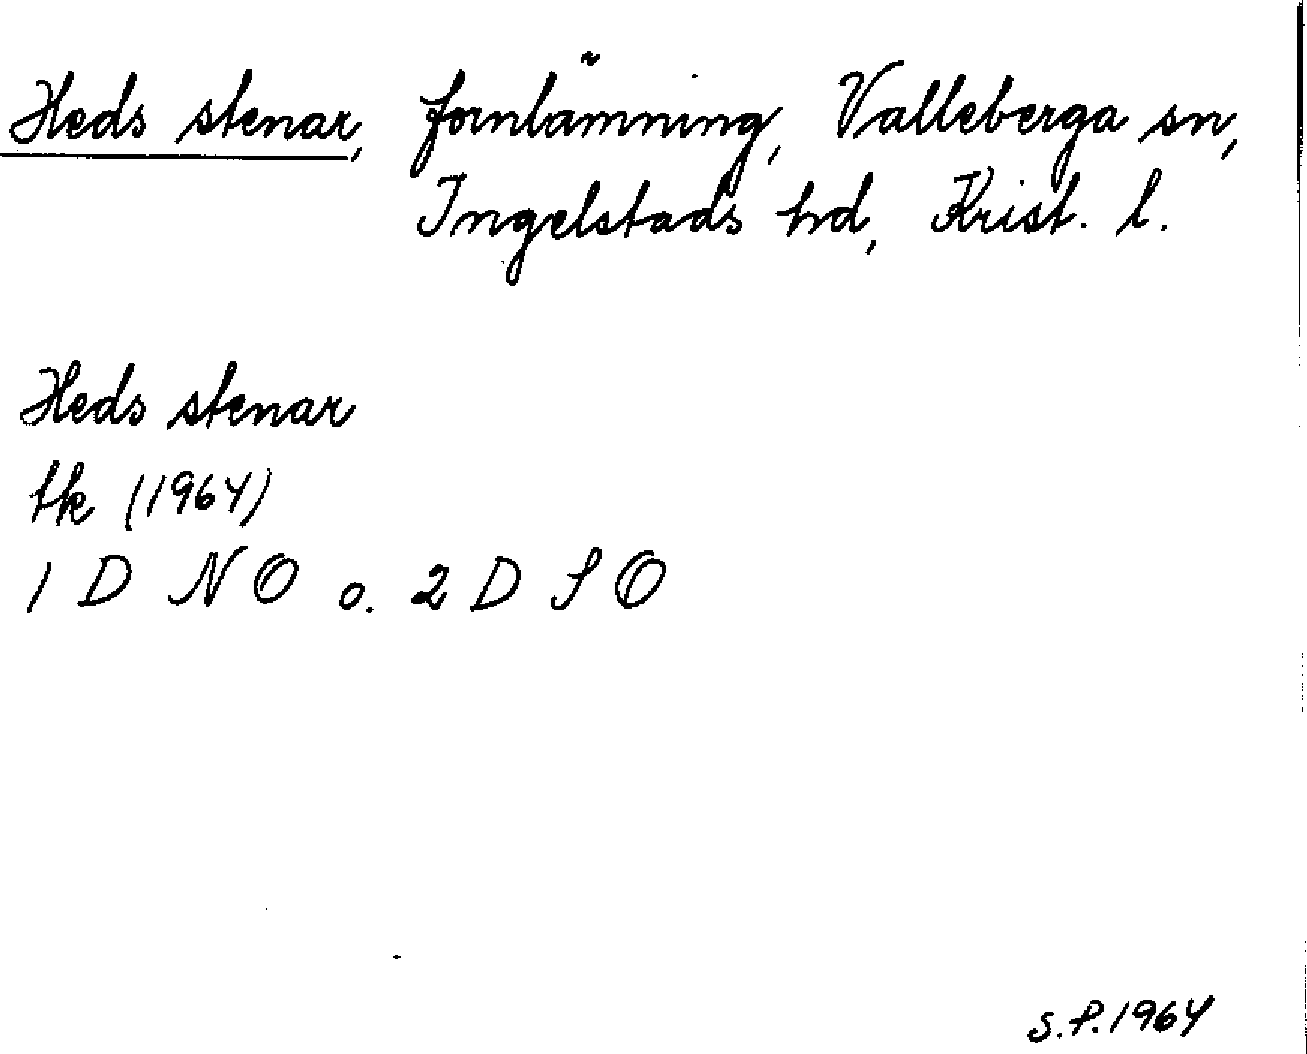 Heds stenar, fornlämning, Valleberga sn,
Ingelstads hd, Krist. l.
Heds stenar
tk (1964)
1 D NO o. 2 D SO
S.P. 1964